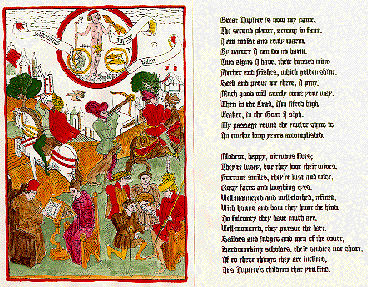 Great Jupiter is now my name,
The second planet, strong in fame.
I am moist and really warm,
By nature I can do no harm.
Two signs I have, their houses mine
Archer and fishes, which gibbon shine.
Seek and grant me there, I pray,
Much good will surely come your way.
Then in the Crab, I'm lifted high,
Weaker, in the Goat I sigh.
My passage round the zodiac signs is
In twelve long years accomplished.
Modest, happy, virtuous those,
They're wise, but they love their
Fortune smiles, they're just and nice,
Rosy faces and laughing eyes.
Well-mannered and well-clothed, refined,
With hounds and they hunt the hind.
In falconry they have much art.
Well-mannered, they pursue the hart.
Bailiffs and judges and men of the court,
Hardworking scholars, their studies not short.
If to these things they are inclined,
It's Jupiter's children that you find.